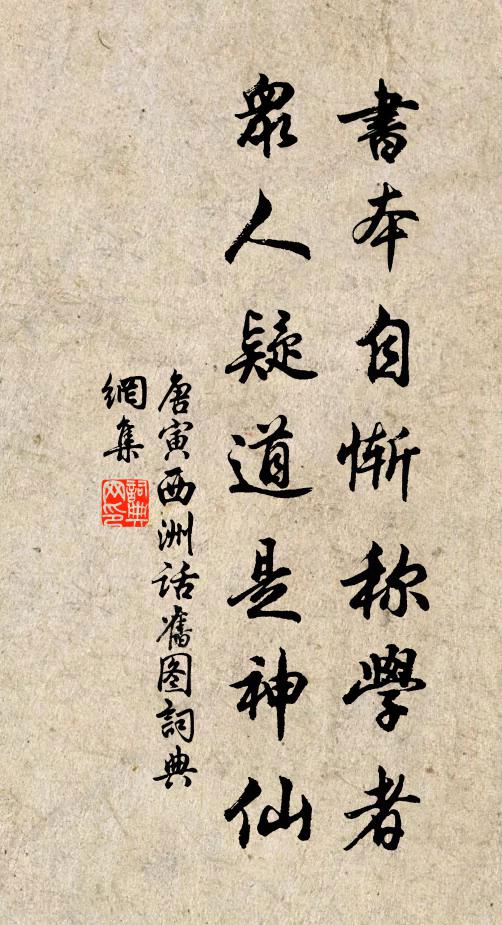 書本自慚称學者
衆人疑道是神仙
唐寅西洲话舊图詞典
網集
詞典
网印